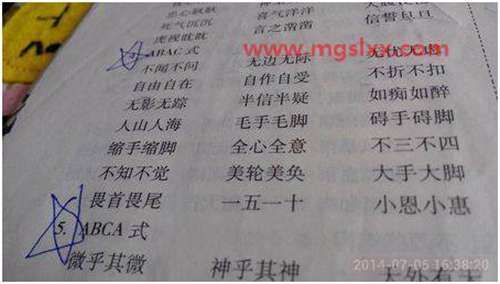 死气沉沉 喜气洋洋
虎视眈眈 言之凿凿 信誓旦旦
ABAC 式 www.mgslxx.com
不闻不问 无边无际 无忧无虑
自由自在 自作自受 不折不扣
无影无踪 半信半疑 如痴如醉
人山人海 毛手毛脚 碍手碍脚
缩手缩脚 全心全意 不三不四
不知不觉 美轮美奂 大手大脚
畏首畏尾 一五一十 小恩小惠
5. ABCA 式
微乎其微 神乎其神 天外有天
2014-07-05 16:38:20